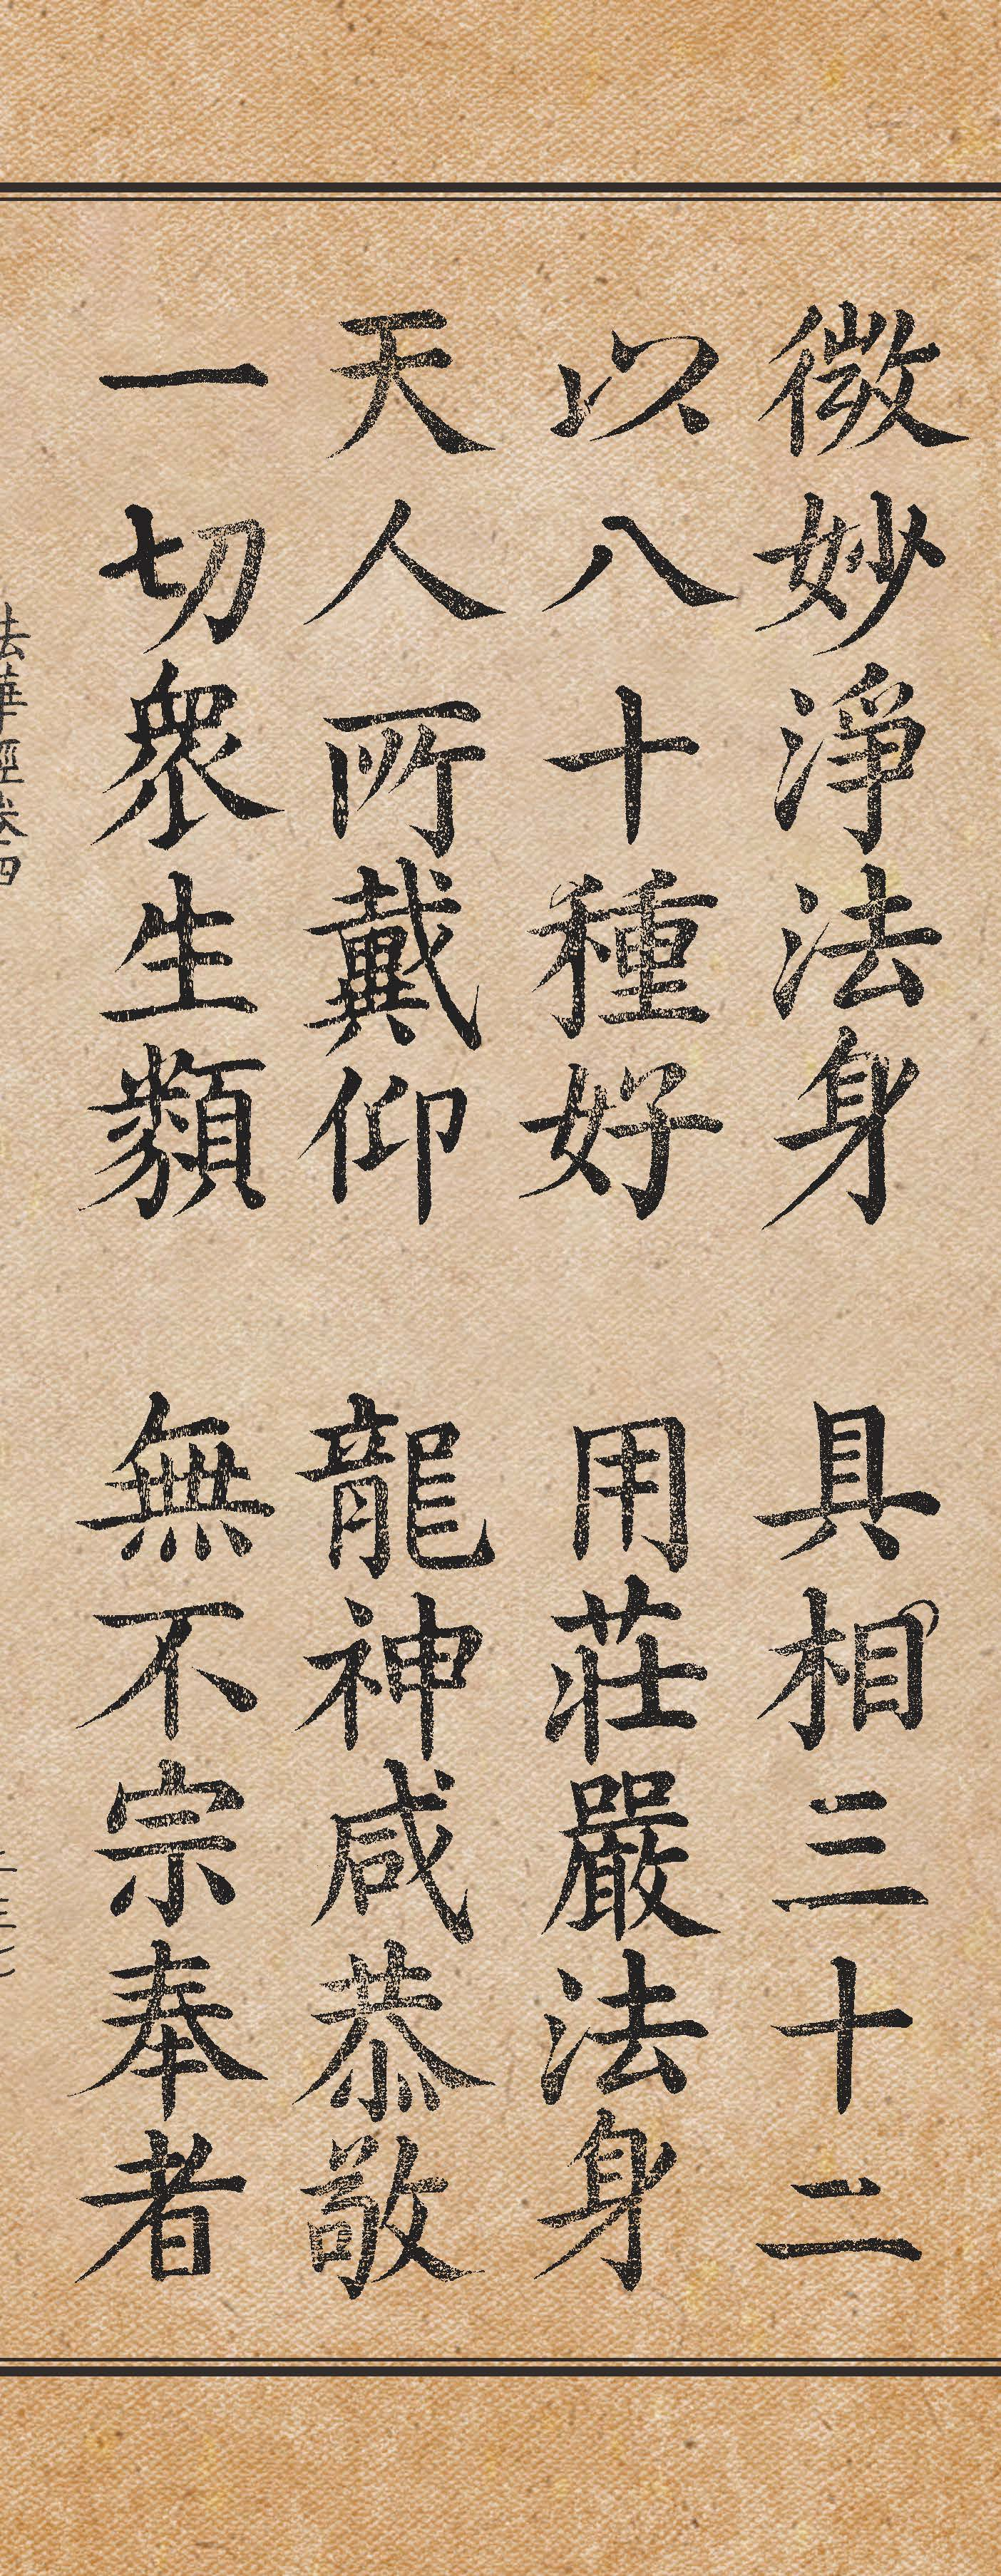 微妙淨法身 具相三十二
以八十種好 用莊嚴法身
天人所戴仰 龍神咸恭敬
一切衆生類 無不宗奉者
法華經卷四